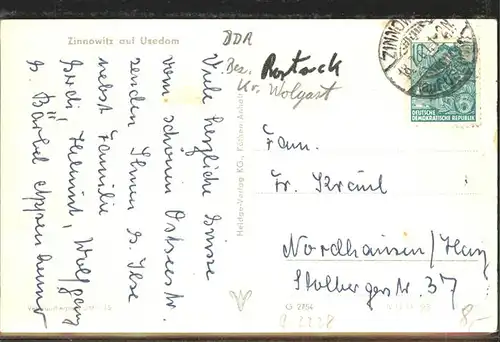 Zinnowitz auf Usedom
DDR
Bez. Rostock
Kr. Wolgast
Viele herzliche Grüsse
vom schönen Ostseestr.
senden Ihnen Ilse
nebst Familie
Gerdi, Helmut, Wolfgang
u. Bärbel
Heldge-Verlag KG., Köthen-Anhalt
DEUTSCHE
DEMOKRATISCHE REPUBLIK
ZINNOWITZ
Fam.
Fr. Kräul
Nordhausen/Harz
Stolberger str. 37
G 2764
8,-